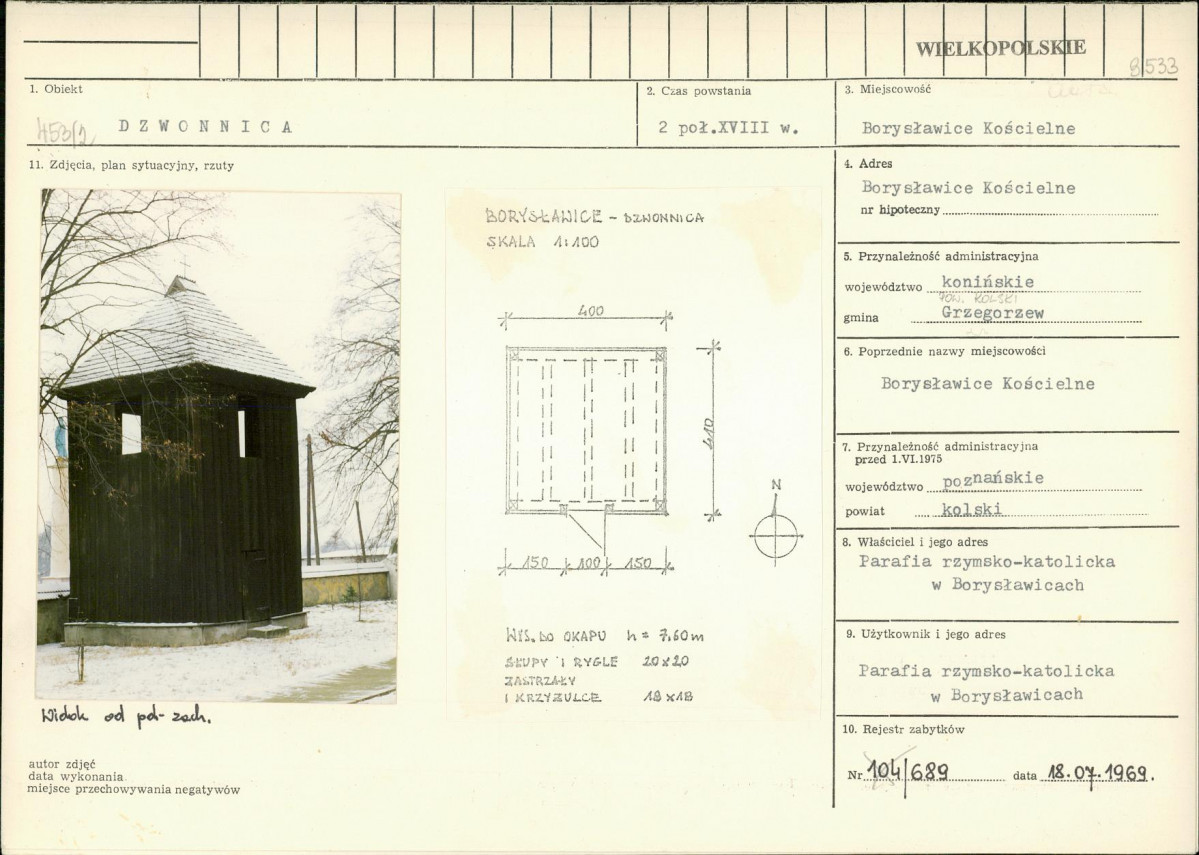 WIELKOPOLSKIE
8533
1. Obiekt
453/2
DZWONNICA
2. Czas powstania
2 poł.XVIII w.
3. Miejscowość
Borysławice Kościelne
11. Zdjęcia, plan sytuacyjny, rzuty
BORYSŁAWICE - DZWONNICA
SKALA 1:100
400
410
N
150 100 150
WYS. DO OKAPU h = 7,60m
SŁUPY I RYGLE 20x20
ZASTRZAŁY
I KRZYŻULCE 18x18
Widok od pd-zach.
autor zdjęć
data wykonania
miejsce przechowywania negatywów
4. Adres
Borysławice Kościelne
nr hipoteczny
5. Przynależność administracyjna
województwo konińskie
POW. KOLSKI
gmina Grzegorzew
6. Poprzednie nazwy miejscowości
Borysławice Kościelne
7. Przynależność administracyjna
przed 1.VI.1975
województwo poznańskie
powiat kolski
8. Właściciel i jego adres
Parafia rzymsko-katolicka
w Borysławicach
9. Użytkownik i jego adres
Parafia rzymsko-katolicka
w Borysławicach
10. Rejestr zabytków
Nr 104/689 data 18.07.1969.